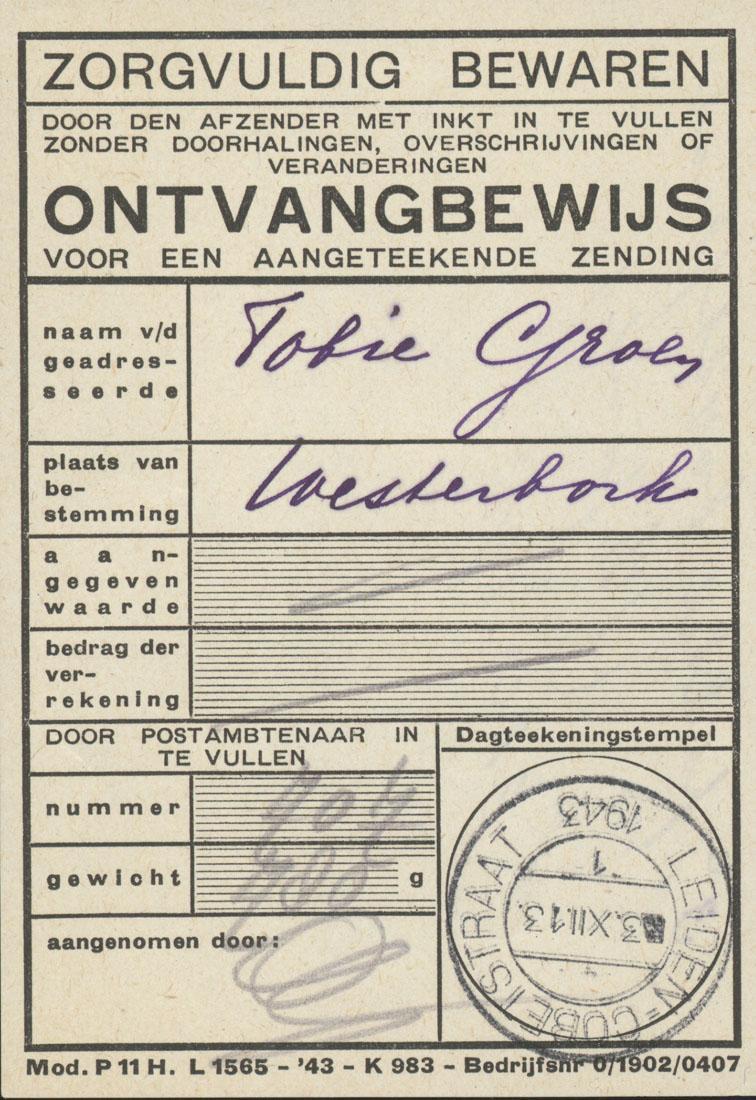 ZORGVULDIG BEWAREN
DOOR DEN AFZENDER MET INKT IN TE VULLEN
ZONDER DOORHALINGEN, OVERSCHRIJVINGEN OF
VERANDERINGEN
ONTVANGBEWIJS
VOOR EEN AANGETEEKENDE ZENDING
naam v/d
geadres-
seerde
Tobie Groen
plaats van
be-
stemming
Westerbork
aan-
gegeven
waarde
bedrag der
ver-
rekening
DOOR POSTAMBTENAAR IN
TE VULLEN
nummer
gewicht
g
aangenomen door:
Dagteekeningstempel
LEIDEN=COBETSTRAAT
1943
3.XII.13.
1
Mod. P 11 H. L 1565 - '43 - K 983 - Bedrijfsnr 0/1902/0407